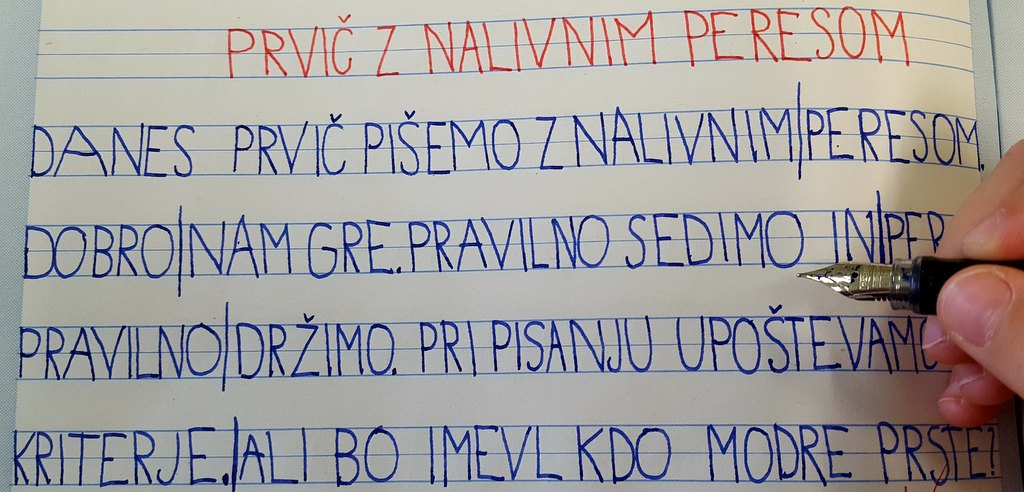 PRVIČ Z NALIVNIM PERESOM
DANES PRVIČ PIŠEMO Z NALIVNIM|PERESOM.
DOBRO|NAM GRE. PRAVILNO SEDIMO IN|PER
PRAVILNO|DRŽIMO. PRI PISANJU UPOŠTEVAMO
KRITERJE.|ALI BO IMEVL KDO MODRE PRSTE?